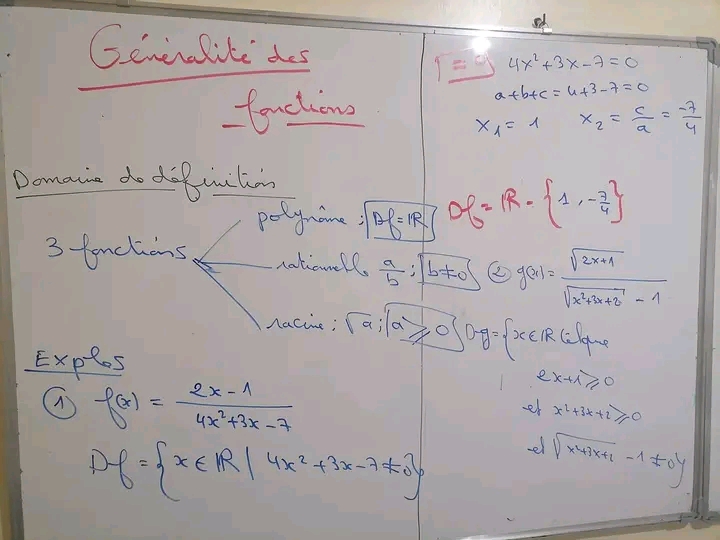 Généralité des
fonctions
Domaine de définition
3 fonctions
polynôme ; Df = ℝ
rationnelle a/b ; b ≠ 0
racine ; √a ; a ⩾ 0
Exples
① f(x) = (2x - 1)/(4x² + 3x - 7)
Df = {x ∈ ℝ | 4x² + 3x - 7 ≠ 0}
4x² + 3x - 7 = 0
a + b + c = 4 + 3 - 7 = 0
x₁ = 1 x₂ = c/a = -7/4
Df = ℝ - {1, -7/4}
② g(x) = √(2x+1)/(√(x²+3x+2) - 1)
Dg = {x ∈ ℝ tq que
2x+1 ⩾ 0
et x² + 3x + 2 ⩾ 0
et √(x²+3x+2) - 1 ≠ 0}